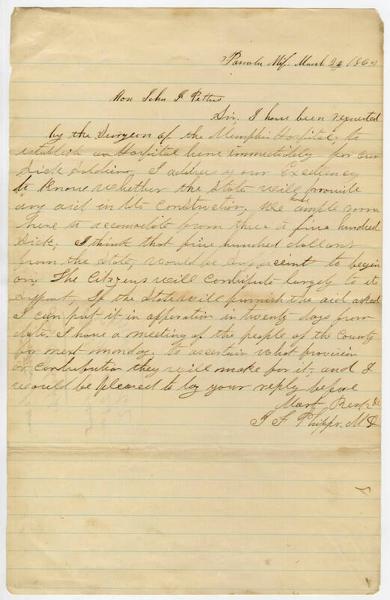 Panola Mis. March 23 1862
Hon John J Pettus
Sir, I have been requested
by the Surgeon of the Memphis Hospital, to
establish an Hospital here immediately for our
Sick Soldiers, I address your Excellency
to know whether the State will provide
any aid in its construction, We have ample room
here to accomodate from three to five hundred
Sick, I think that five hundred dollars
from the State, would be sufficient to begin
on, The Citizens will contribute largely to its
support, If the State will furnish the aid asked
I can put it in operation in twenty days from
date, I have a meeting of the people of the County
for next monday, to ascertain what provision
or Contribution they will make for it, and I
would be pleased to have your reply before
Most Resp. &c
J F Phipps, M D